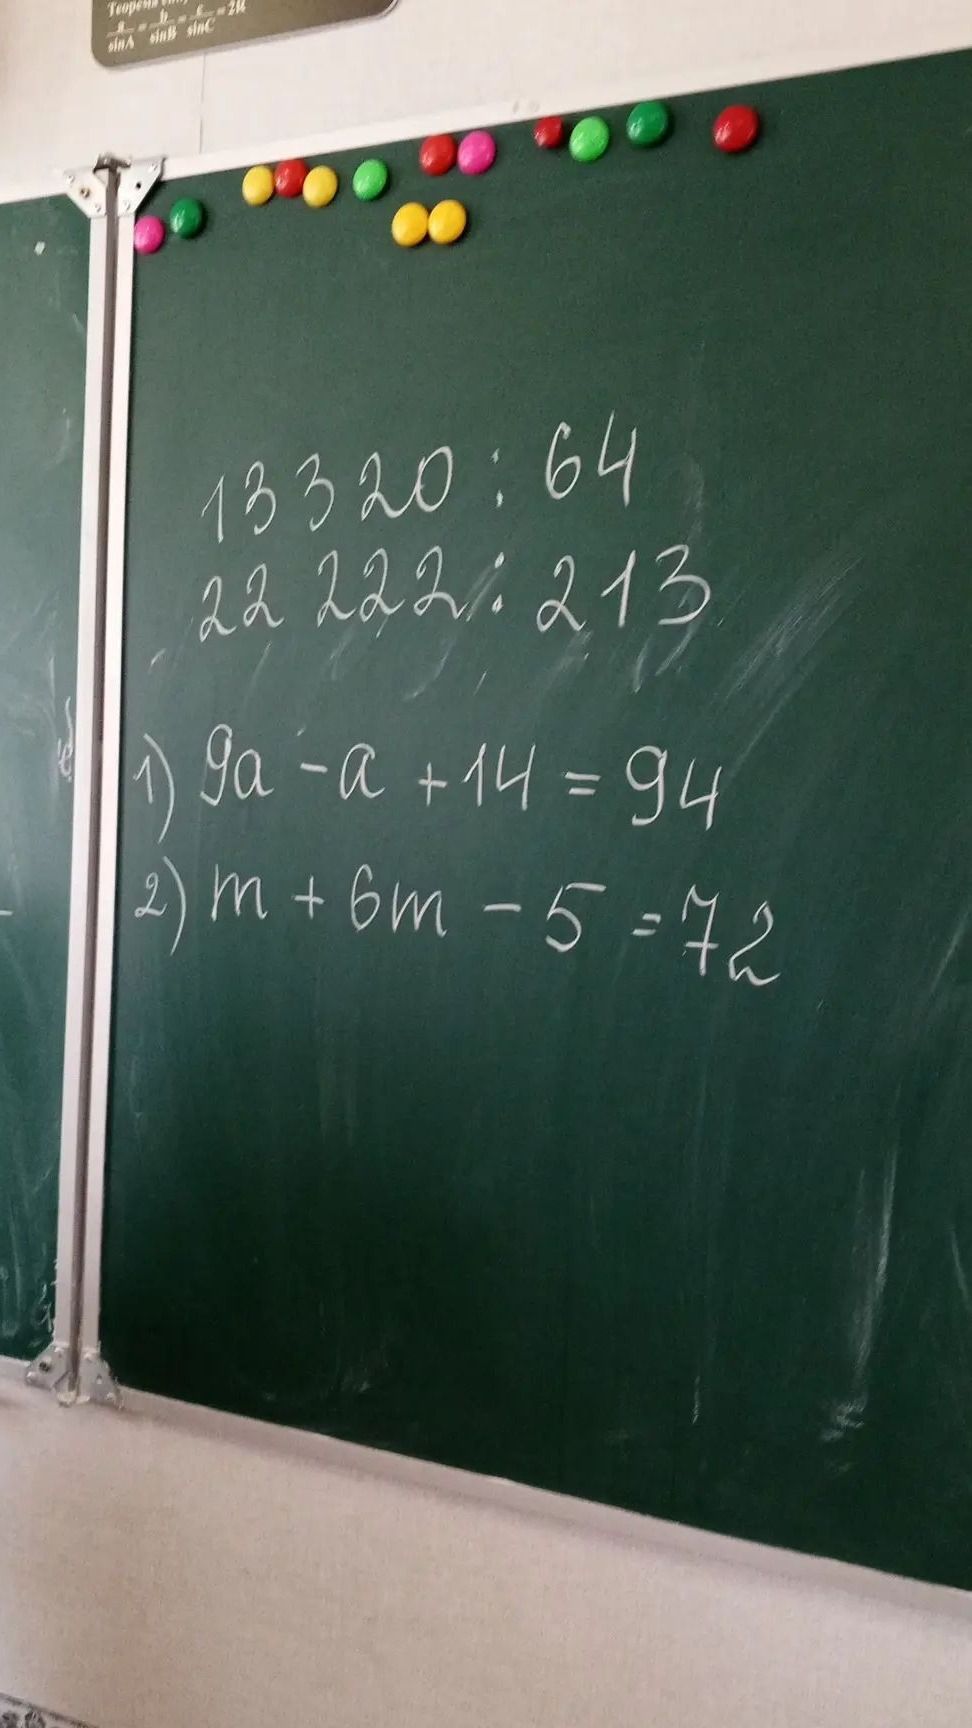 Теорема
a/sinA = b/sinB = c/sinC = 2R
13320 : 64
22 222 : 213
1) 9a - a + 14 = 94
2) m + 6m - 5 = 72